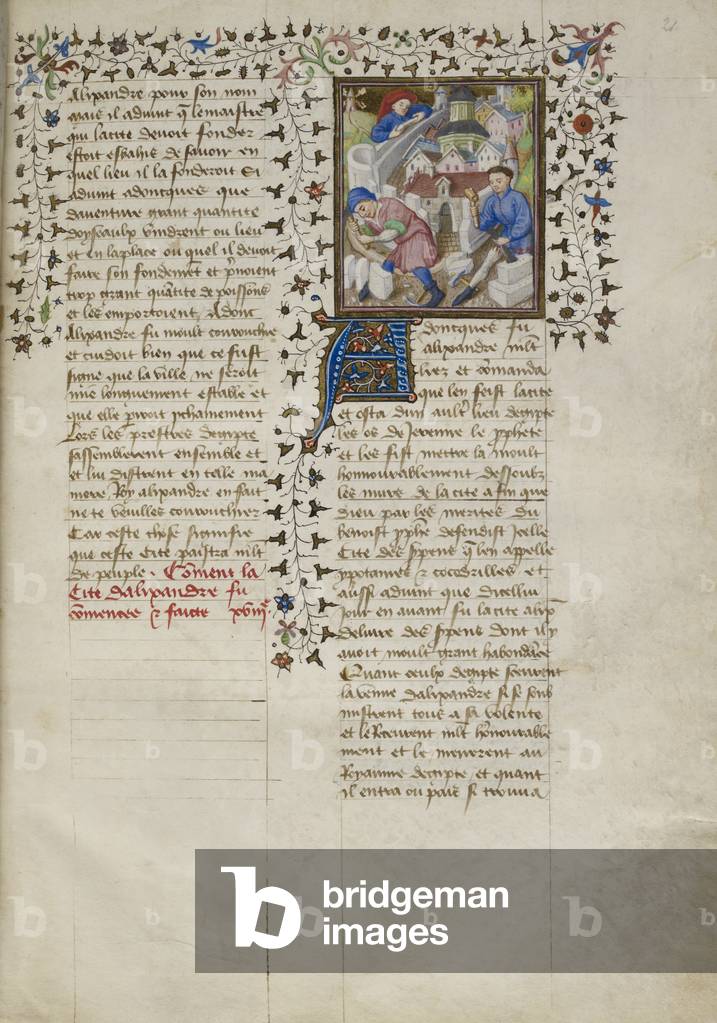 Alixandre pour son nom
mais il advint q̃ le maistre
qui la cite devoit fonder
estoit esbahis de savoir en
quel lieu il la fonderoit Si
advint adoncques que
daventure grant quantite
doyseaulx vindrent ou lieu
et en la place ou quel il devoit
faire son fondemẽt et p̃noient
trop grant quãtite de poissons
et les emportoient. Adonc
Alixandre fu moult courouchie
et cuidoit bien que ce fust
signe que la ville ne seroit
mie longuement estable et
que elle periroit
Lors les prestres degipte
sassemblerent ensemble et
et lui distrent en telle ma
niere Roy alixandre en fait
ne te veulles courouchier
Car ceste chose signifie
que ceste cite paistra mlt
de peuple. Cõment la
Cite dalixandre fu
cõmencee et faicte xviij
21
Adoncques fu
alixandre mlt
liez et cõmanda
que len feist la cite
et osta dun aultre lieu degipte
les os de Jeremie le pphete
et les fist mettre la moult
honnourablement dessoubz
les murs de la cite a fin que
dieu par les merites du
benoist pphẽ defendist Icelle
Cite des spens q̃ len appelle
ypotames et cocodrilles et
aussi advint que dicellui
Jour en avant fu la cite
delivre des spens dont il y
avoit moult grant habondãce
Quant ceulx degipte sceurent
la venue dalixandre si se soub
mistrent tous a sa volente
et le Receurent mlt hõnourable
ment et le menerent au
Royaume degipte, et quant
il entra ou pais si trouva
bridgeman
images